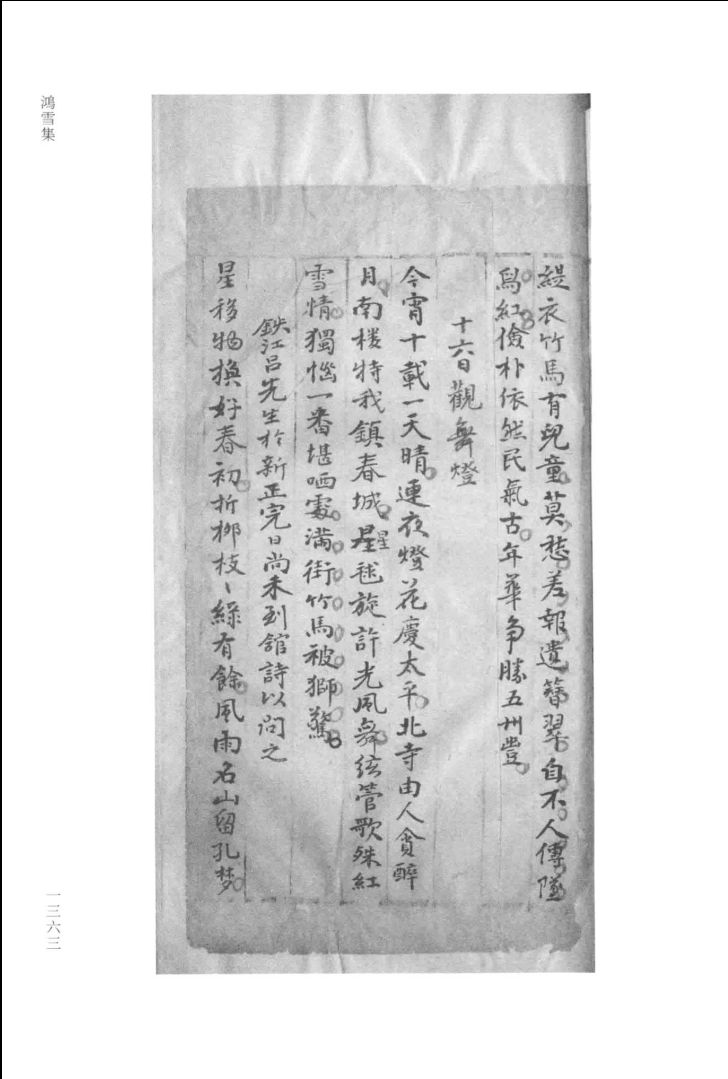 鴻雪集
緹衣竹馬有兒童莫愁羌報遺簪翠自不人傳墜
舄紅儉朴依然民氣古年華争勝五州豊
十六日觀舞燈
今宵十載一天晴連夜燈花慶太平北寺由人貪醉
月南楼特我鎮春城星星毬旋許光風舞絃管歌殊紅
雪情獨惱一番堪哂處滿街竹馬被獅驚
鉄江吕先生於新正完日尚未到舘詩以問之
星移物換好春初折栁枝〻綠有餘風雨名山留孔梦
一三六三